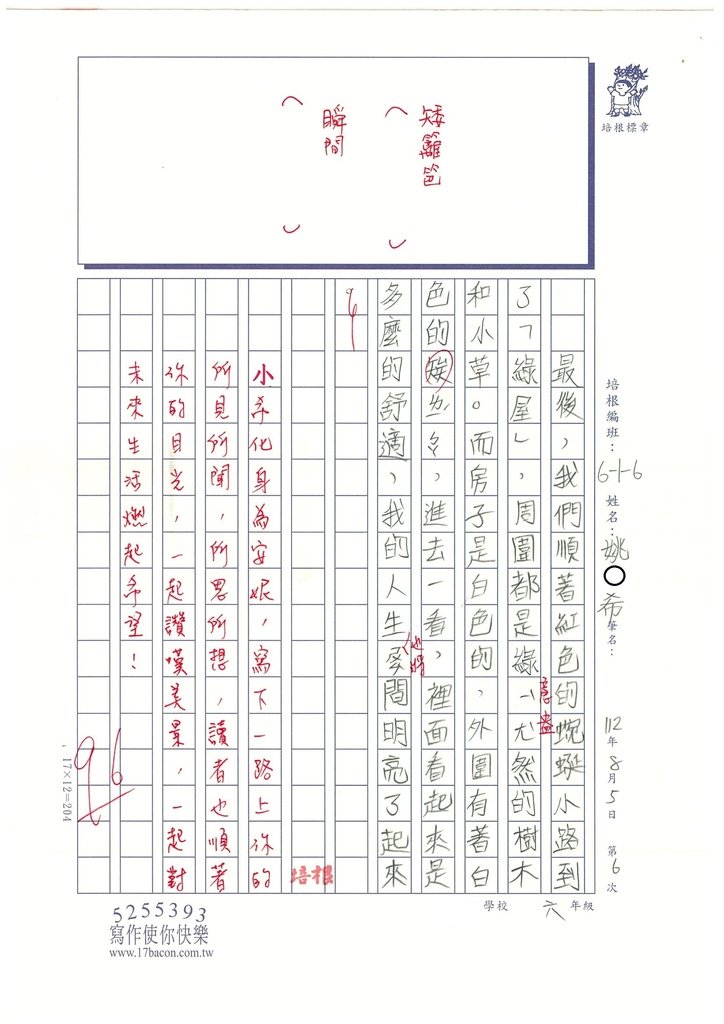 矮籬笆
瞬間
培根標章
培根編班：6-1-6 姓名：姚○希 筆名：
112年8月5日 第6次
最後，我們順著紅色的蜿蜒小路到
了「綠屋」，周圍都是綠ㄧㄤ然的樹木
意盎
和小草。而房子是白色的，外圍有著白
色的矮ㄌㄌ，進去一看，裡面看起來是
多麼的舒適，我的人生間明亮了起來
也將
小希化身為安妮，寫下一路上你的
所見所聞，所思所想，讀者也順著
你的目光，一起讚嘆美景，一起對
未來生活燃起希望！
培根
96
17×12=204
學校 六 年級
5255393
寫作使你快樂
www.17bacon.com.tw